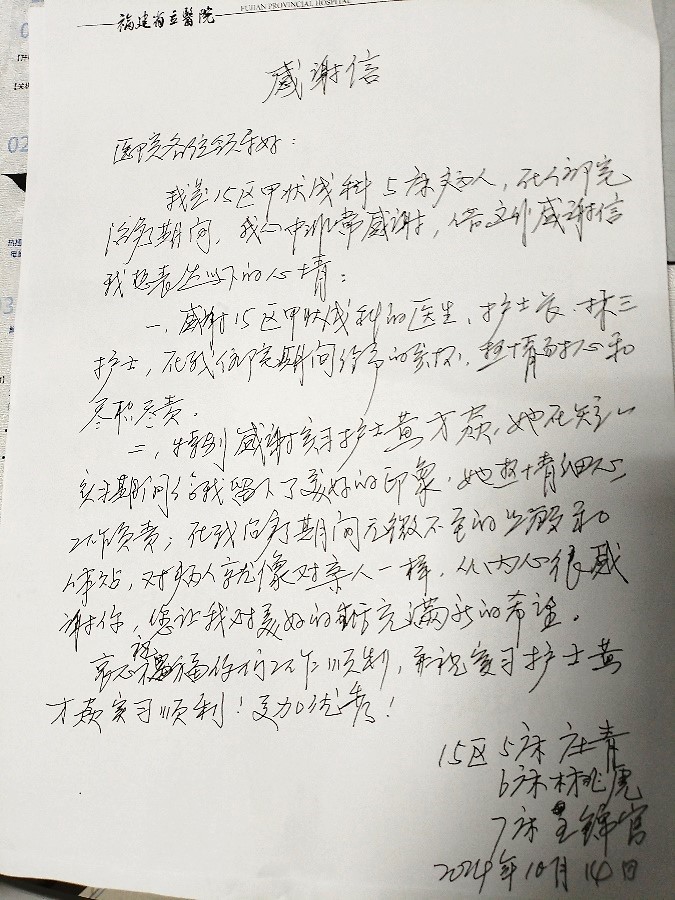 福建省立醫院
FUJIAN PROVINCIAL HOSPITAL
感谢信
医院各位领导好：
我是15区甲状腺科5床病人，在住院
治疗期间，我心中非常感谢，
我想表达以下的心情：
一、感谢15区甲状腺科的医生、护士长、林三
护士，在我住院期间给予的关怀，热情耐心和
尽职尽责。
二，特别感谢实习护士黄才颖，她在短短
实习期间给我留下了美好的印象，她热情细心
工作负责；在我治疗期间无微不至的照顾和
体贴，对病人就像对亲人一样，从内心很感
谢你，您让我对美好的生活充满新的希望。
衷心祝福你们工作顺利，并祝实习护士黄
才颖实习顺利！更加优秀！
15区5床 庄青
6床 林兆虎
7床 锦官
2024年10月14日